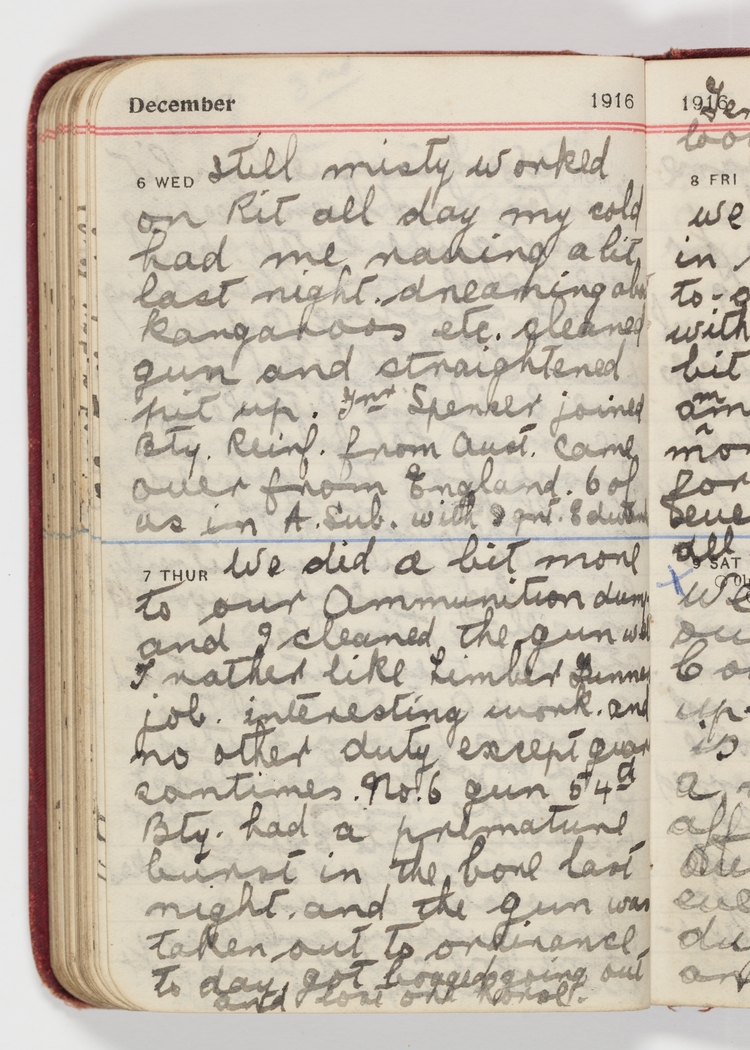 December 1916
6 WED Still misty worked
on Pit all day my cold
had me raving a bit
last night. dreaming abt
Kangaroos etc. cleaned
gun and straightened
pit up. Gnr Spencer joined
Bty. Reinf. from Aust. Came
over from England. 6 of
us in A. Sub. with Sgnt.
7 THUR We did a bit more
to our Ammunition dump
and I cleaned the gun
I rather like Limber Gunner
job. interesting work. and
no other duty except guar
somtimes. No. 6 gun 54th
Bty. had a premature
burst in the bore last
night. and the gun was
taken out to ordinance
to day. got bogged going out
and lost one horse.
1916
loo
8 FRI
we
in
to-g
with
bit
am
mor
for
seve
all
9 SAT
we
ou
6 o
up.
is
a
aff
our
eve
du
an